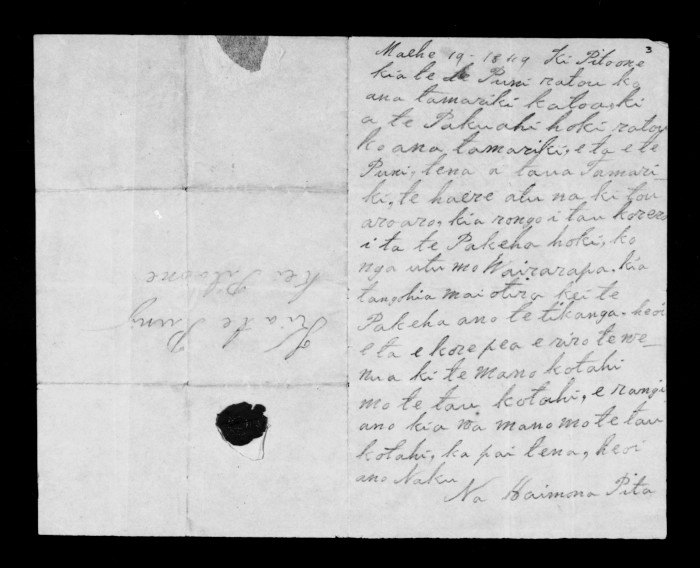 3
Maehe 19 - 1849 Ki Pitoone
kia te Puni ratou ko
ana tamariki katoa, ki
a te Pakuahi hoki ratou
ko ana tamariki, e ta e te
Puni, tena a taua Tamari-
ki, te haere atu na ki tou
aroaro, kia rongo i tau korero
i ta te Pakeha hoki, ko
nga utu mo Wairarapa, kia
tangohia mai otira kei te
Pakeha ano te tikanga. heoi
e ta e kore pea e riro te we-
nua ki te mano kotahi
mo te tau kotahi, e rangi
ano kia wa mano mo te tau
kotahi, ka pai tena, heoi
ano Naku
Na Haimona Pita
Kia te Puni
kei Pitoone